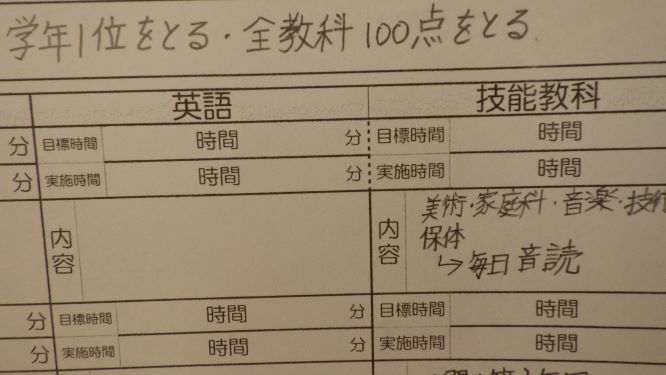 学年1位をとる・全教科100点をとる
英語 技能教科
分 目標時間 時間 分 目標時間 時間
分 実施時間 時間 分 実施時間 時間
内容 内容 美術・家庭科・音楽・技術
保体
↳毎日音読
分 目標時間 時間 分 目標時間 時間
分 実施時間 時間 分 実施時間 時間